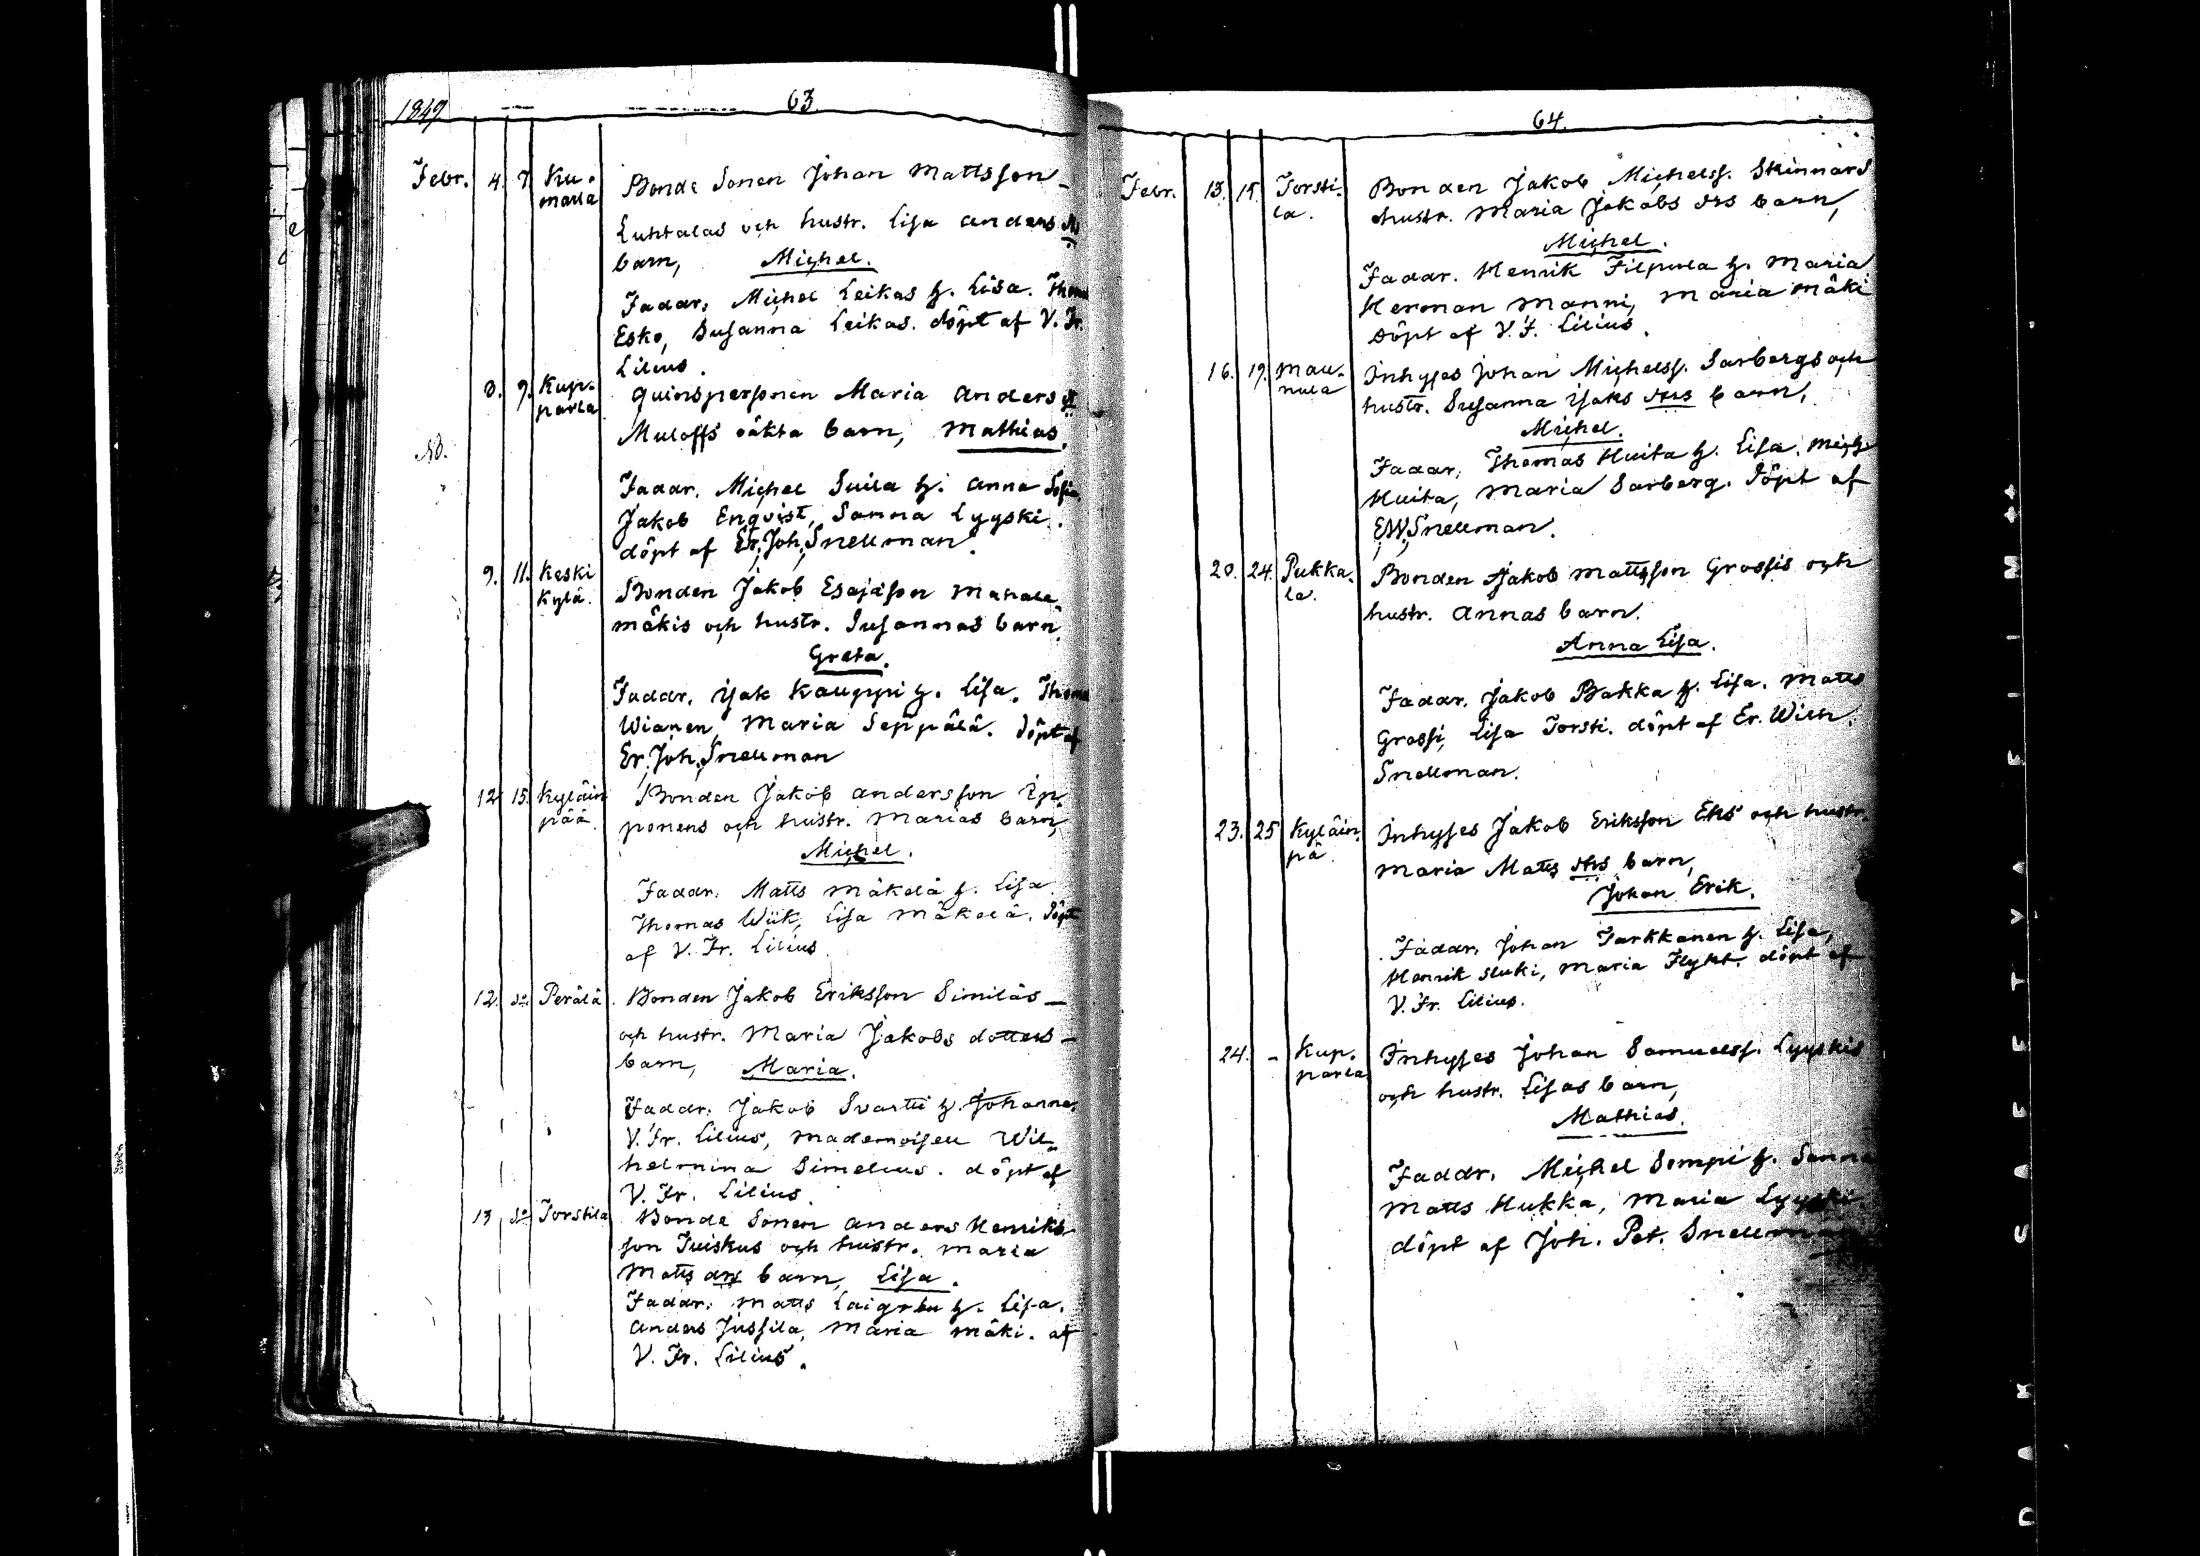 1849
63.
Febr. 4. 7. Ku-
marla
Bonde Sonen Johan Mattsson
Luhtalas och hustr. Lisa Anders drs
barn, Michel.
Faddr. Michel Leikas h. Lisa. Thom
Esko, Susanna Leikas. döpt af V. Fr.
Lilius.
8. 9. Kup-
parla
Quinspersonen Maria Anders dr
Muloffs oäkta barn, Mathias.
No.
Faddr. Michel Suila h. Anna Sofia
Jakob Enqvist, Sanna Lyyski.
döpt af Er. Joh. Snellman.
9. 11. Keski
Kylä.
Bonden Jakob Esajason Mahala-
mäkis och hustr. Susannas barn
Greta.
Faddr. Isak Kauppi h. Lisa. Thoma
Wianen, Maria Seppälä. döpt af
Er. Joh. Snellman
12 15. Kyläin
pää.
Bonden Jakob Andersson Ip-
ponens och hustr. Marias barn,
Michel.
Faddr. Matts Mäkelä h. Lisa
Thomas Wiik, Lisa Mäkelä. döpt
af V. Fr. Lilius.
12. do Perälä
Bonden Jakob Eriksson Similäs
och hustr. Maria Jakobs dotters
barn, Maria.
Faddr. Jakob Svartti h Johanna.
V. Fr. Lilius, Mademoisell Wil-
helmina Simelius. döpt af
V. Fr. Lilius.
13 do Torstila
Bonde Sonen Anders Henriks
son Tuiskus och hustr. Maria
Matts drs barn, Lisa.
Faddr. Matts h. Lisa.
Anders Jussila, Maria Mäki. af
V. Fr. Lilius.
64.
Febr. 13. 15. Torsti-
la.
Bonden Jakob Michelss. Skinnars
hustr. Maria Jakobs drs barn,
Michel.
Faddr. Henrik Filpula h. Maria
Herman Manni, Maria Mäki
döpt af V. F. Lilius.
16. 19. Mau-
nula
Inhyses Johan Michelss. Sarbergs och
hustr. Susanna Isaks drs barn,
Michel.
Faddr. Thomas Huita h. Lisa. Mich
Huita, Maria Sarberg. döpt af
E.W. Snellman.
20. 24. Pukka-
la.
Bonden Jakob Mattsson Grossis och
hustr. Annas barn.
Anna Lisa.
Faddr. Jakob Bakka h. Lisa. Matts
Grossi, Lisa Torsti. döpt af Er. Wilh.
Snellman.
23. 25 Kyläin-
pä.
Inhyses Jakob Eriksson Eks och hustr.
Maria Matts drs barn,
Johan Erik.
Faddr. Johan Tarkkanen h. Lisa,
Henrik Huki, Maria Flykt. döpt af
V. Fr. Lilius.
24. - Kup-
parla
Inhyses Johan Samuelss. Lyyskis
och hustr. Lisas barn,
Mathias.
Faddr. Michel Sompi h. Sanna
Matts Hukka, Maria Lyyski
döpt af Joh. Pet. Snellman